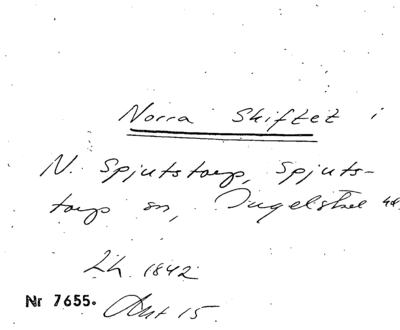 Norra Skiftet i
N. Spjutstorp, Spjuts-
torp sn, Ingelstad hd.
Lh. 1842
Nr 7655. Akt 15